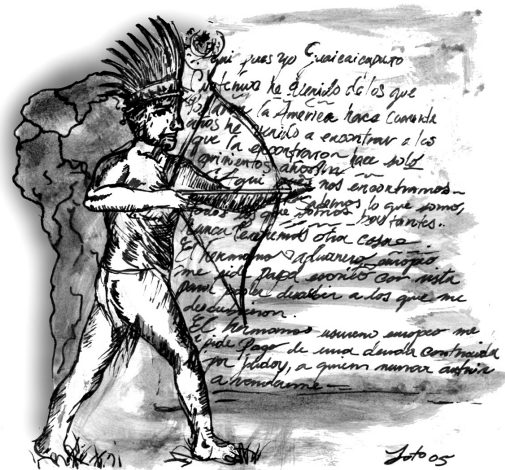 Aquí pues yo Guaicaipuro
Cuatemoc he venido a los que
la América hace Cuarenta
años he venido a encontrar a los
que la encontraron hace solo
quinientos años
Aquí pues nos encontramos
sabemos lo que somos,
bastantes..
nunca tendremos otra cosa.
El hermano aduanero europeo
me pide papel escrito con vista
para poder descubrir a los que me
descubrieron.
El hermano usurero europeo me
pide Pago de una deuda contraida
por Judas, a quien nunca autorice
a venderme
Soto 05